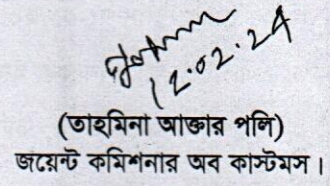 12.02.24
(তাহমিনা আক্তার পলি)
জয়েন্ট কমিশনার অব কাস্টমস।